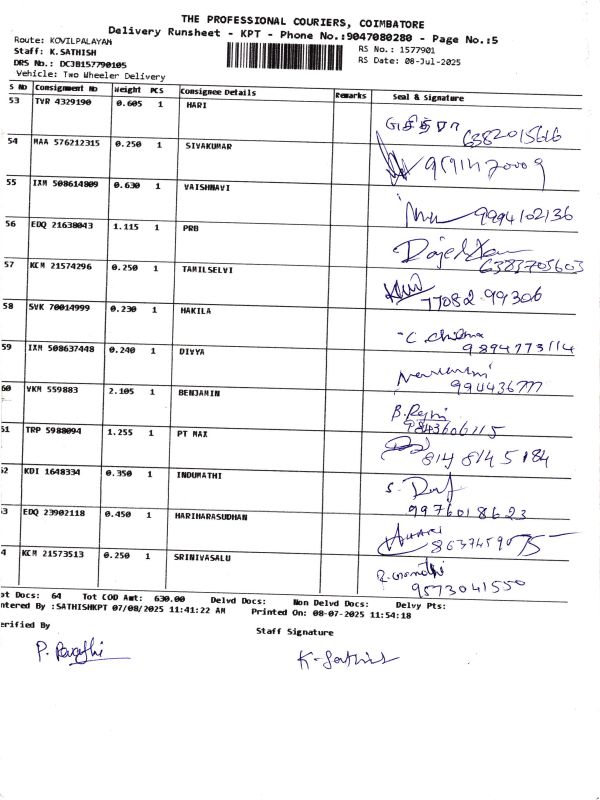 THE PROFESSIONAL COURIERS, COIMBATORE
Delivery Runsheet - KPT - Phone No.:9047080280 - Page No.:5
Route: KOVILPALAYAM
Staff: K.SATHISH
DRS No.: DCJB157790105
Vehicle: Two Wheeler Delivery
RS No.: 1577901
RS Date: 08-Jul-2025
S No Consignment No Weight PCS Consignee Details Remarks Seal & Signature
53 TVR 4329190 0.605 1 HARI சித்ரா 6382015616
54 MAA 576212315 0.250 1 SIVAKUMAR
55 IXM 508614809 0.630 1 VAISHNAVI 9994102136
56 EDQ 21638043 1.115 1 PRB 6383705603
57 KCM 21574296 0.250 1 TAMILSELVI 77082 99306
58 SVK 70014999 0.230 1 HAKILA C. 9894773114
59 IXM 508637448 0.240 1 DIVYA 994436777
60 VKM 559883 2.105 1 BENJAMIN B. 9843606115
51 TRP 5988094 1.255 1 PT MAX 814 814 5 184
52 KDI 1648334 0.350 1 INDUMATHI S. 9976018623
3 EDQ 23902118 0.450 1 HARIHARASUDHAN
4 KCM 21573513 0.250 1 SRINIVASALU 9573041550
ot Docs: 64 Tot COD Amt: 630.00 Delvd Docs: Non Delvd Docs: Delvy Pts:
ntered By :SATHISHKPT 07/08/2025 11:41:22 AM Printed On: 08-07-2025 11:54:18
erified By
Staff Signature
K-Sathish